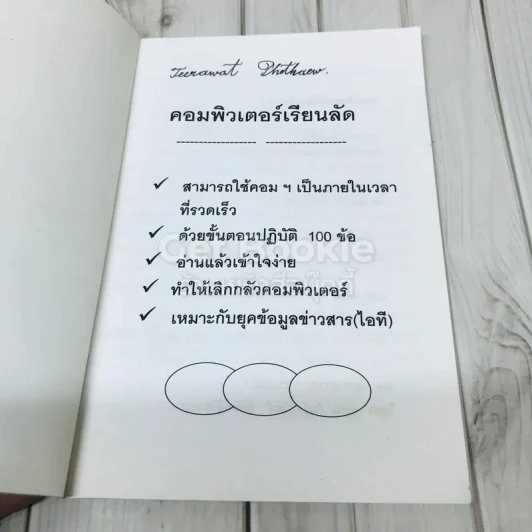 Teerawat Phothaew.
คอมพิวเตอร์เรียนลัด
------------------ ------------------
✓ สามารถใช้คอม ฯ เป็นภายในเวลา
ที่รวดเร็ว
✓ ด้วยขั้นตอนปฏิบัติ 100 ข้อ
Get Bookie
✓ อ่านแล้วเข้าใจง่าย
✓ ทำให้เลิกกลัวคอมพิวเตอร์
✓ เหมาะกับยุคข้อมูลข่าวสาร(ไอที)